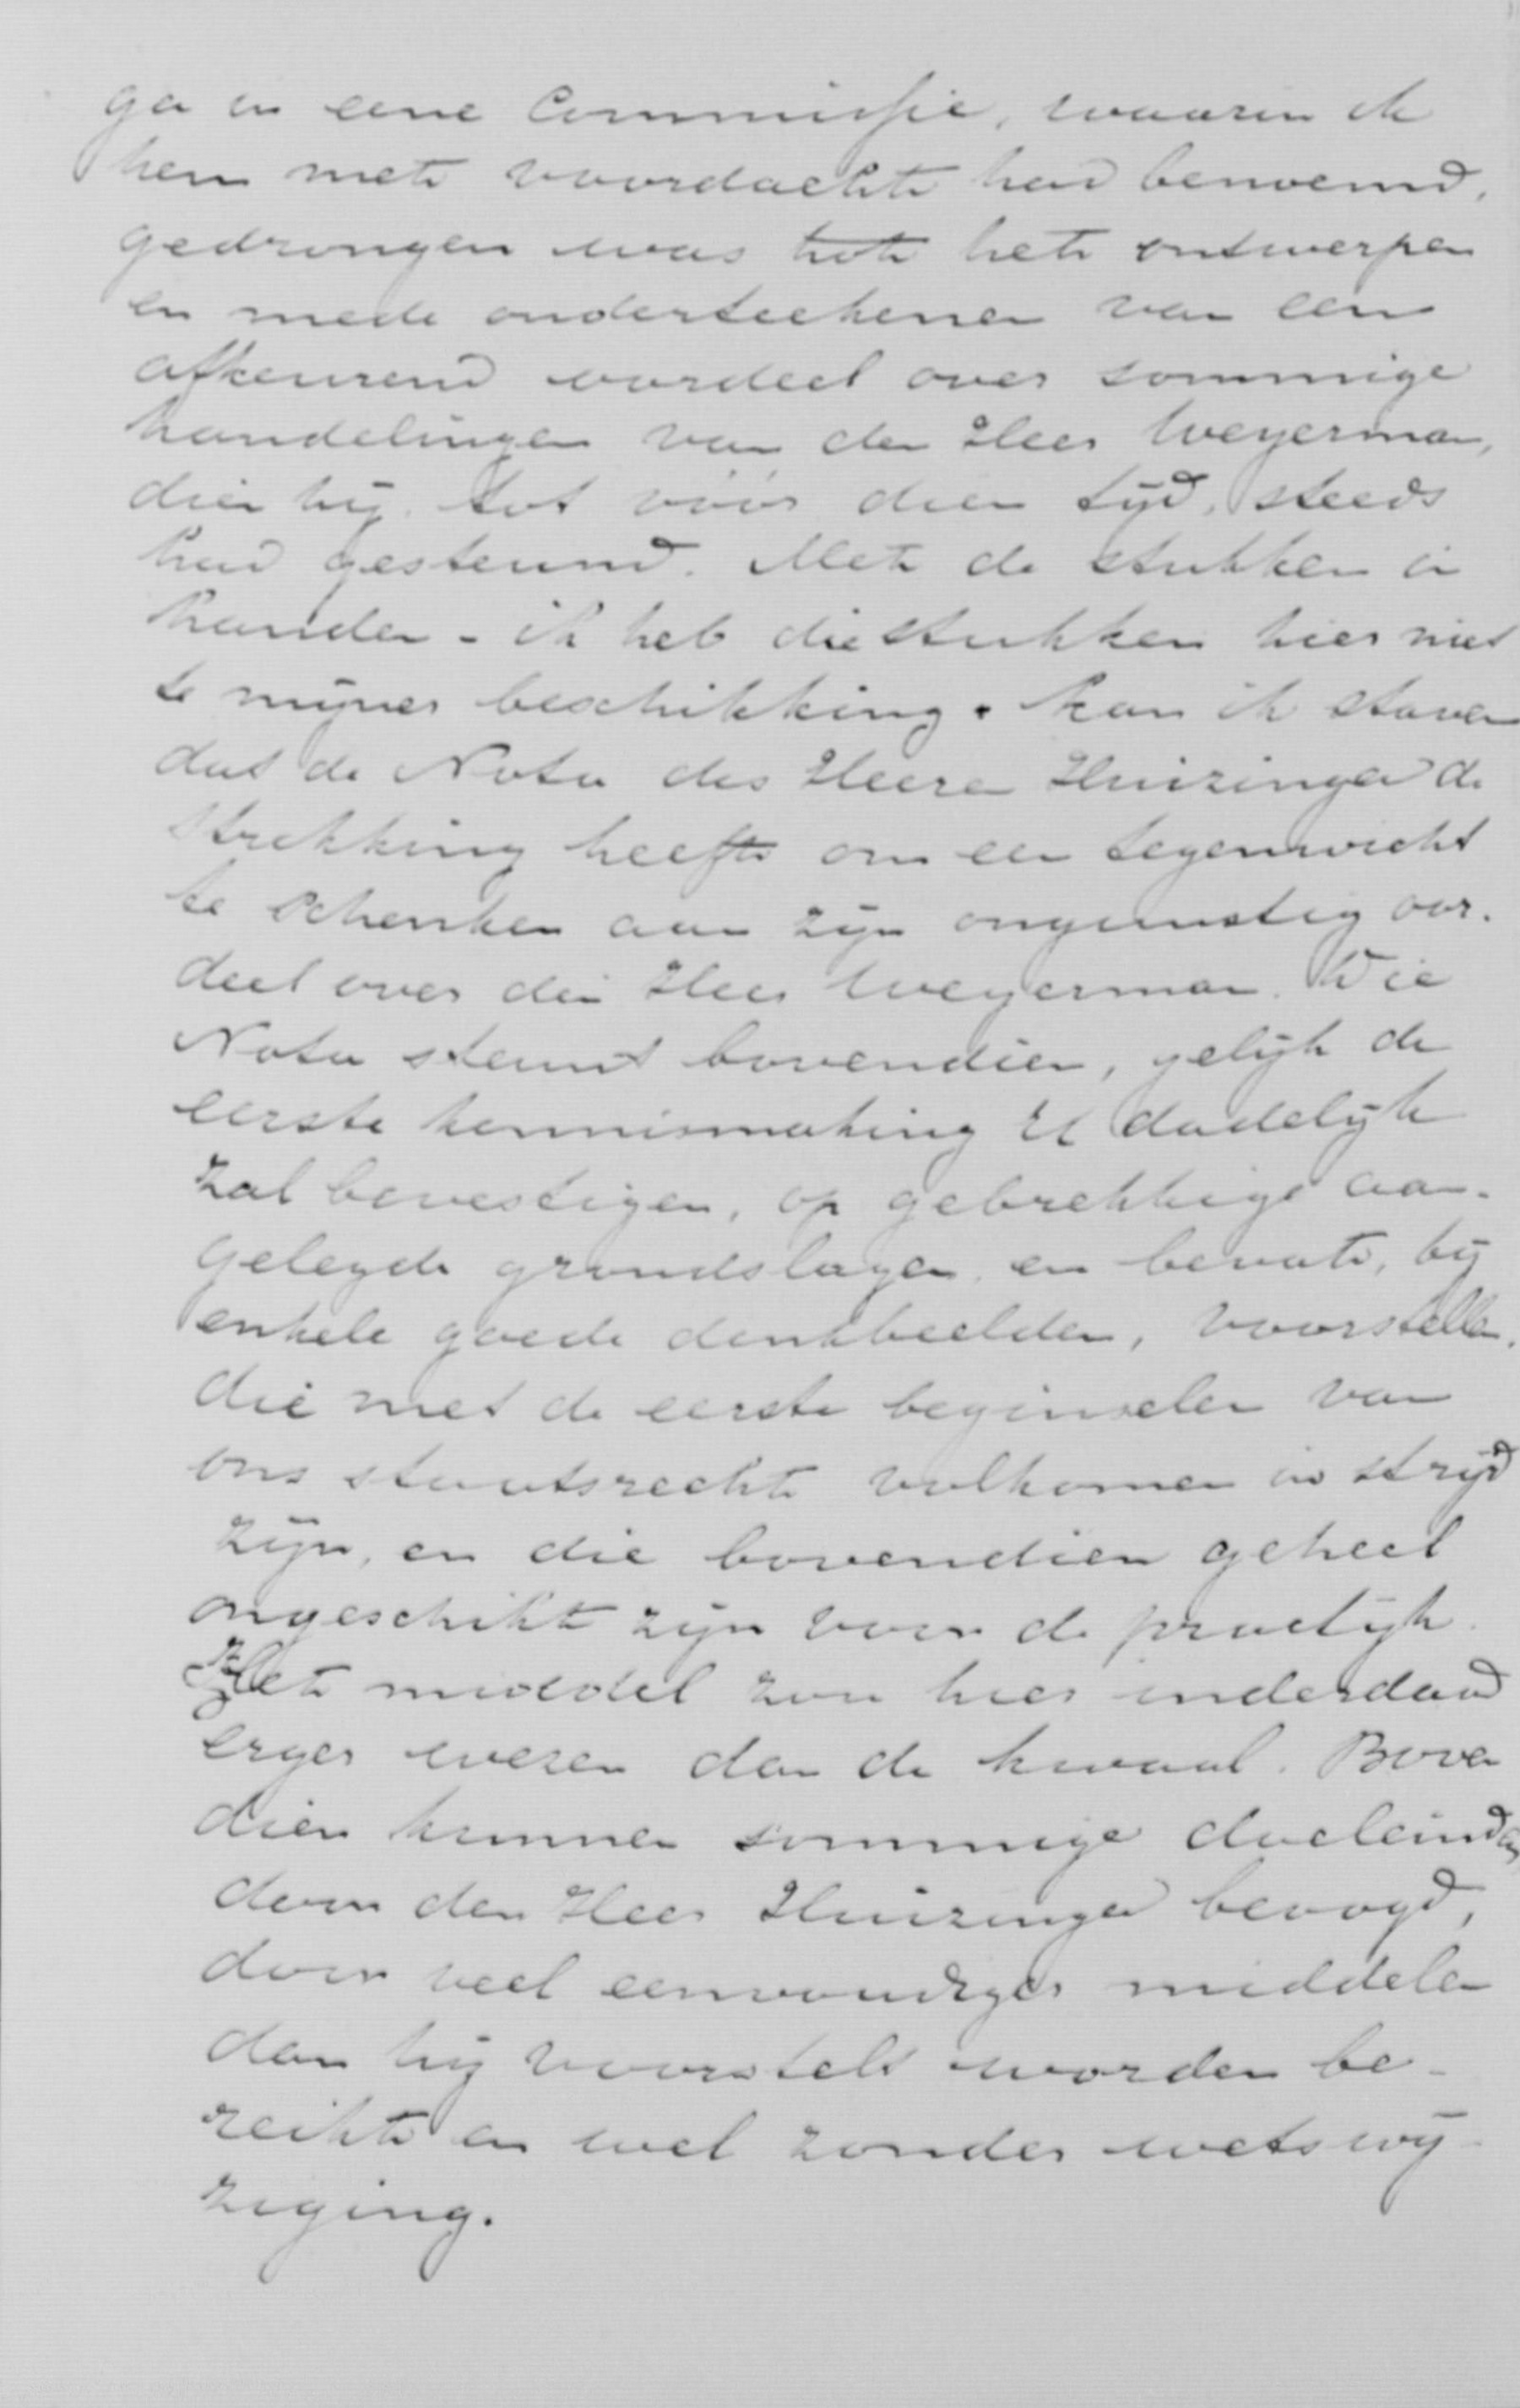 ga in eene Commissie, waarin ik
hem met voordacht had benoemd,
gedrongen was tot het ontwerpen
en mede onderteekenen van een
afkeurend oordeel over sommige
handelingen van den Heer Weyerman,
dien hij, tot vóór dien tijd, steeds
had gesteund. Met de stukken in
handen - ik heb die stukken hier niet
te mijner beschikking - kan ik staven
dat de Nota des Heeren Huizinga de
strekking heeft om een tegenwicht
te schenken aan zijn ongunstig oor-
deel over den Heer Weyerman. Die
Nota steunt bovendien, gelijk de
eerste kennismaking U dadelijk
zal bevestigen, op gebrekkige aan-
gelegde grondslagen, en bevat, bij
enkele goede denkbeelden, voorstellen,
die met de eerste beginselen van
ons staatsrecht volkomen in strijd
zijn, en die bovendien geheel
ongeschikt zijn voor de practijk.
Het middel zou hier inderdaad
erger wezen dan de kwaal. Boven
dien kunnen sommige doeleinden
door den Heer Huizinga beoogd,
door veel eenvoudiger middelen
dan hij voorstelt worden be-
reikt en wel zonder wetswij-
ziging.